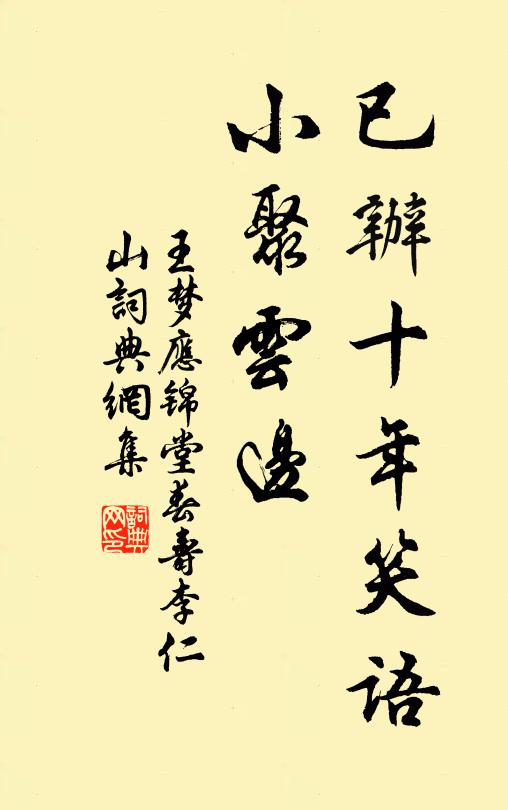 已辦十年笑語
小聚雲邊
王梦應锦堂春壽李仁
山詞典網集
詞典网印